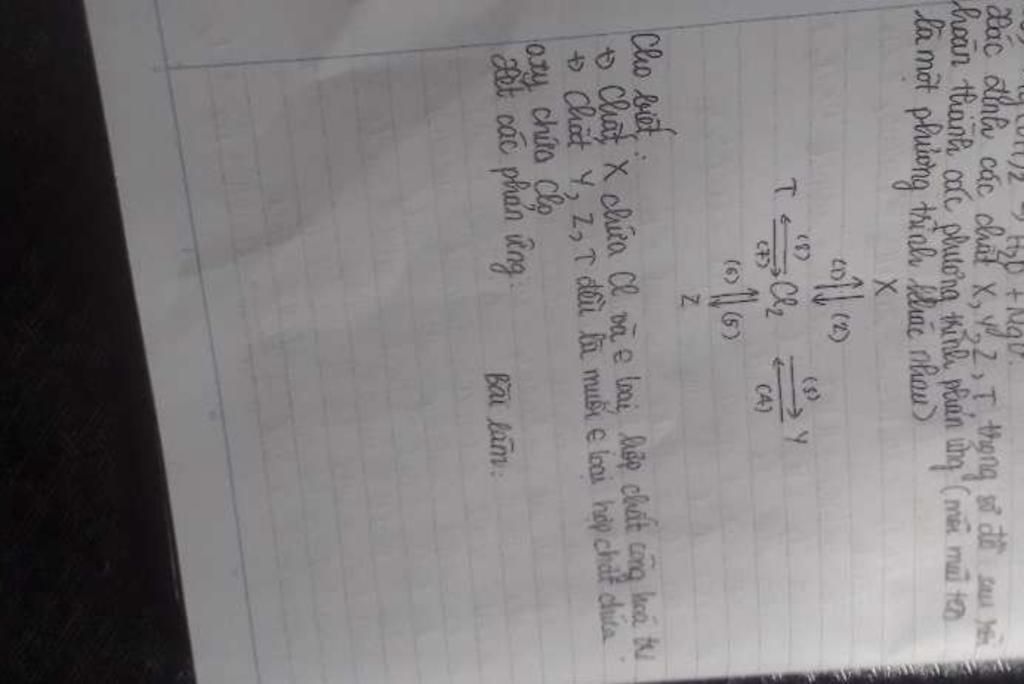 (OH)2 → H2O + MgO
Xác định các chất X, Y, Z, T trong sơ đồ sau
hoàn thành các phương trình phản ứng (mỗi mũi tên
là một phương trình khác nhau)
X
(1) ⇅ (2)
T (8) ⇄ (7) Cl2 (3) ⇄ (4) Y
(6) ⇅ (5)
Z
Cho biết:
+) Chất X chứa Cl và ∈ loại hợp chất cộng hoá trị
+) Chất Y, Z, T đều là muối ∈ loại hợp chất chứa
oxy chứa clo
các phản ứng:
Bài làm: